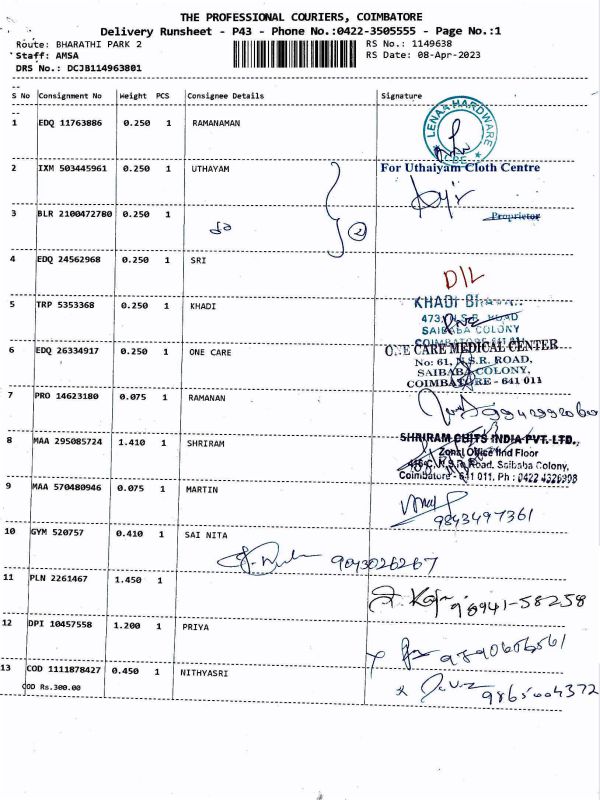 THE PROFESSIONAL COURIERS, COIMBATORE
Delivery Runsheet - P43 - Phone No.:0422-3505555 - Page No.:1
Route: BHARATHI PARK 2 RS No.: 1149638
Staff: AMSA RS Date: 08-Apr-2023
DRS No.: DCJB114963801
S No Consignment No Weight PCS Consignee Details Signature
1 EDQ 11763886 0.250 1 RAMANAMAN
LENAA HARDWARE
2 IXM 503445961 0.250 1 UTHAYAM For Uthaiyam Cloth Centre
Proprietor
3 BLR 2100472780 0.250 1
2
4 EDQ 24562968 0.250 1 SRI
D/L
5 TRP 5353368 0.250 1 KHADI
KHADI
473, N.S.R. ROAD
SAIBABA COLONY
6 EDQ 26334917 0.250 1 ONE CARE ONE CARE MEDICAL CENTER
No: 61, N.S.R. ROAD,
SAIBABA COLONY,
COIMBATORE - 641 011
7 PRO 14623180 0.075 1 RAMANAN
9942992060
8 MAA 295085724 1.410 1 SHRIRAM SHRIRAM CHITS INDIA PVT. LTD.,
Zonal Office IInd Floor
N.S.R. Road, Saibaba Colony,
Coimbatore - 641 011, Ph : 0422 4326998
9 MAA 570480946 0.075 1 MARTIN
9843497361
10 GYM 520757 0.410 1 SAI NITA
9043026267
11 PLN 2261467 1.450 1
98941-58258
12 DPI 10457558 1.200 1 PRIYA
13 COD 1111878427 0.450 1 NITHYASRI
COD Rs.300.00
9865004372